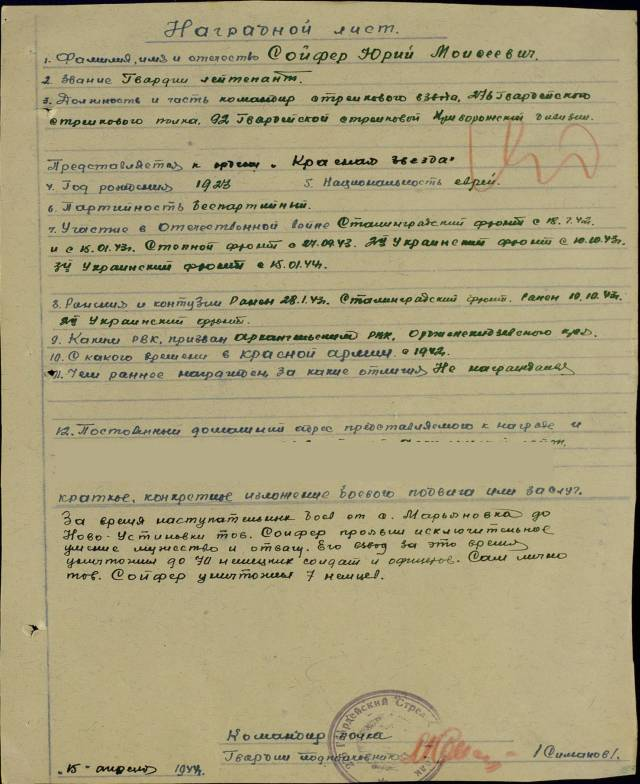 Наградной лист.
1. Фамилия, имя и отчество Сойфер Юрий Моисеевич.
2. Звание Гвардии лейтенант.
3. Должность и часть командир стрелкового взвода, 276 Гвардейского
стрелкового полка, 92 Гвардейской стрелковой Криворожский дивизии.
Представляется к ордену "Красная звезда"
4. Год рождения 1923 5. Национальность еврей.
6. Партийность беспартийный.
7. Участие в Отечественной войне Сталинградский фронт с 18.7.42.
и с 15.01.43г. Степной фронт с 27.09.43. 2й Украинский фронт с 10.10.43г.
3й Украинский фронт с 15.01.44г.
8. Ранения и контузии Ранен 28.1.43г. Сталинградский фронт. Ранен 10.10.43г.
2й Украинский фронт.
9. Каким РВК, призван Архангельским РВК, Орджоникидзевского края.
10. С какого времени в красной армии с 1942г.
11. Чем раннее награжден, за какие отличия Не награждался
12. Постоянный домашний адрес представляемого к награде и
краткое, конкретное изложение боевого подвига или заслуг.
За время наступательных боев от с. Марьяновка до
Ново-Устиновки тов. Сойфер проявил исключительное
умение мужество и отвагу. Его взвод за это время
уничтожил до 70 немецких солдат и офицеров. Сам лично
тов. Сойфер уничтожил 7 немцев.
Командир полка
Гвардии подполковник /Симанов/.
"15" апреля 1944г.